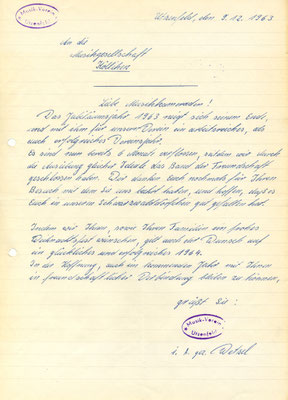 Musik-Verein
Utzenfeld
Utzenfeld, den 9.12.1963
An die
Musikgesellschaft
Kölliken
Liebe Musikkameraden!
Das Jubiläumsjahr 1963 neigt sich seinem Ende,
und mit ihm für unsern Verein ein arbeitsreicher, als
auch erfolgreicher Vereinsjahr.
Es sind nun bereits 6 Monate verflossen, seitdem wir durch
die Ausübung gleicher Ideale das Band der Freundschaft
geschlossen haben. Wir danken euch nochmals für Ihren
Besuch mit dem Sie uns beehrt haben, und hoffen, daß es
Euch in unserem Schwarzwalddörfchen gut gefallen hat.
Indem wir Ihnen, sowie Ihren Familien ein frohes
Weihnachtsfest wünschen, geht auch der Wunsch auf
ein glückliches und erfolgreiches 1964.
In der Hoffnung, auch im kommenden Jahr mit Ihnen
in freundschaftlicher Verbindung bleiben zu können,
grüßt Sie:
Musik-Verein
Utzenfeld
i. A. gez.